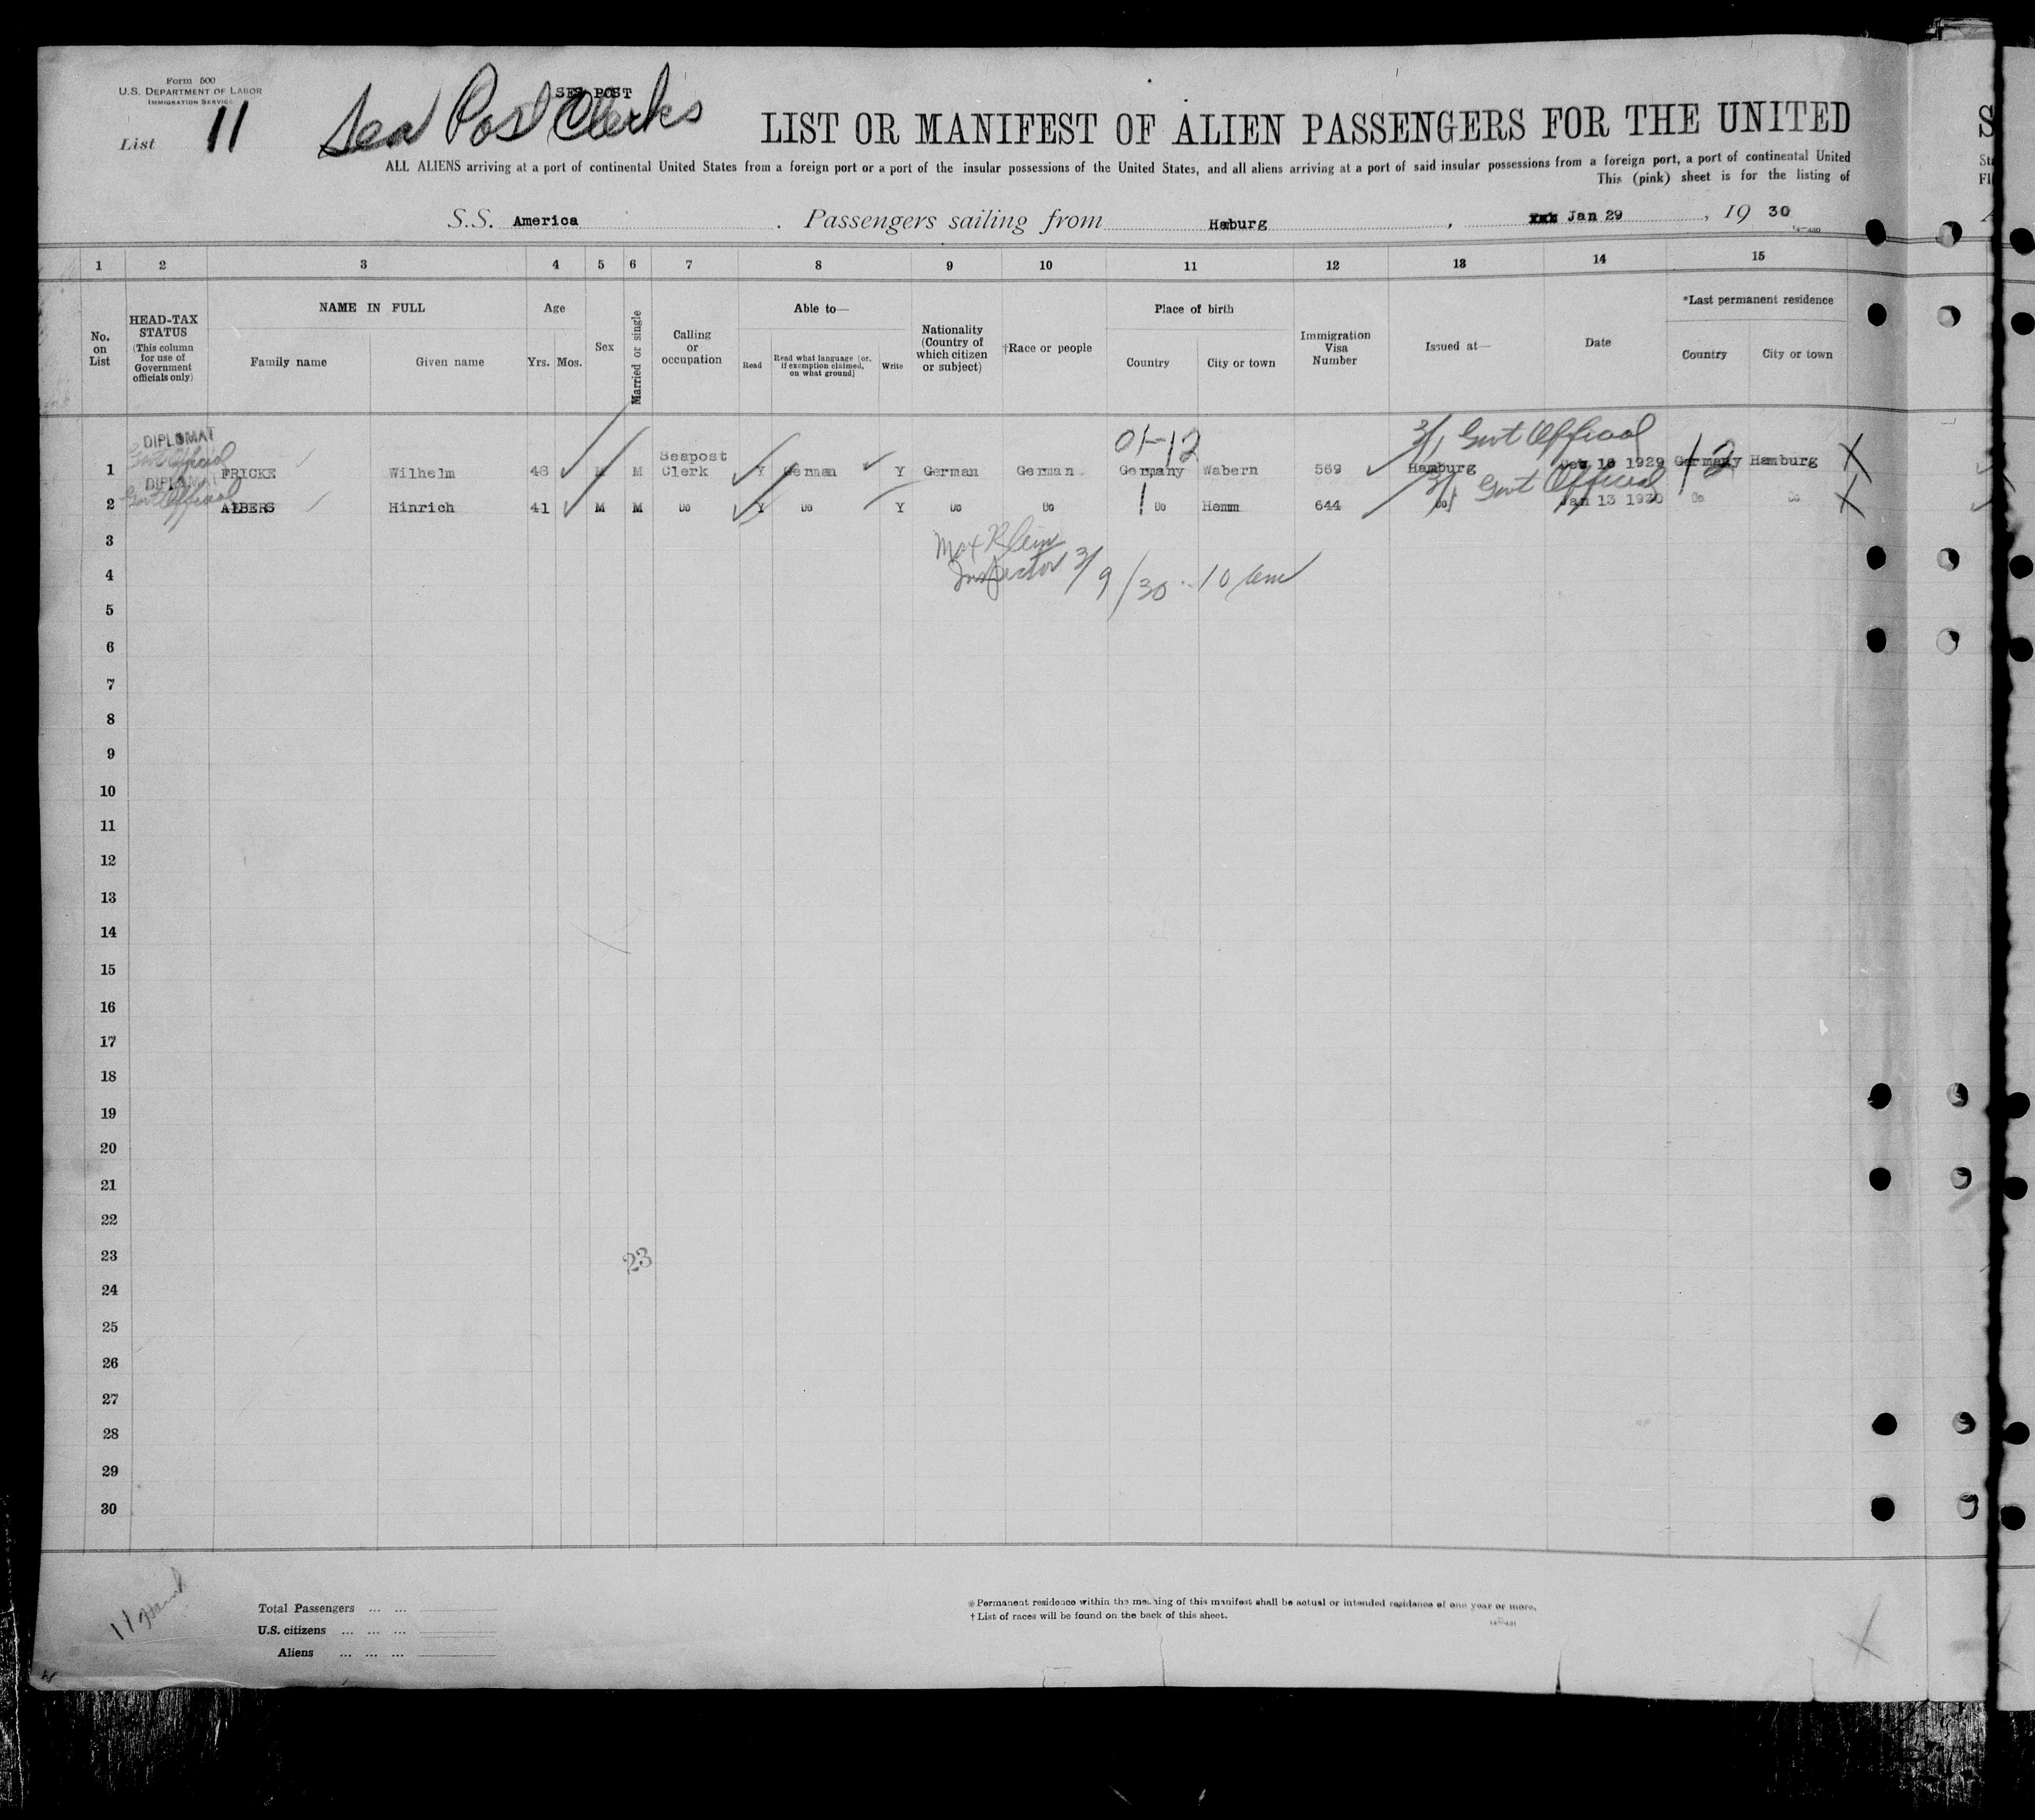 Form 500
U.S. DEPARTMENT OF LABOR
IMMIGRATION SERVICE
List 11
Sea Post Clerks
LIST OR MANIFEST OF ALIEN PASSENGERS FOR THE UNITED
ALL ALIENS arriving at a port of continental United States from a foreign port or a port of the insular possessions of the United States, and all aliens arriving at a port of said insular possessions from a foreign port, a port of continental United
This (pink) sheet is for the listing of
S.S. America . Passengers sailing from Hamburg , Jan 29 , 19 30
1 2 3 4 5 6 7 8 9 10 11 12 13 14 15
No. on List
HEAD-TAX STATUS (This column for use of Government officials only)
NAME IN FULL
Family name Given name
Age
Yrs. Mos.
Sex
Married or single
Calling or occupation
Able to—
Read
Read what language [or, if exemption claimed, on what ground]
Write
Nationality (Country of which citizen or subject)
†Race or people
Place of birth
Country City or town
Immigration Visa Number
Issued at—
Date
*Last permanent residence
Country City or town
01-12
3/1 Govt Official
DIPLOMAT
Govt Official
1 FRICKE Wilhelm 48 M M Seapost Clerk Y German Y German German Germany Wabern 569 Hamburg 1929 Germany Hamburg 12 X
DIPLOMAT
Govt Official
3/1 Govt Official
2 ALBERS Hinrich 41 M M Do Y Do Y Do Do 1 Do Hemm 644 Do Jan 13 1930 Do Do X
3
Max Klein
4
Inspector 3/9/30 10 am
5
6
7
8
9
10
11
12
13
14
15
16
17
18
19
20
21
22
23 23
24
25
26
27
28
29
30
Total Passengers ... ...
U.S. citizens ... ... ...
Aliens ... ... ...
* Permanent residence within the meaning of this manifest shall be actual or intended residence of one year or more.
† List of races will be found on the back of this sheet.
X